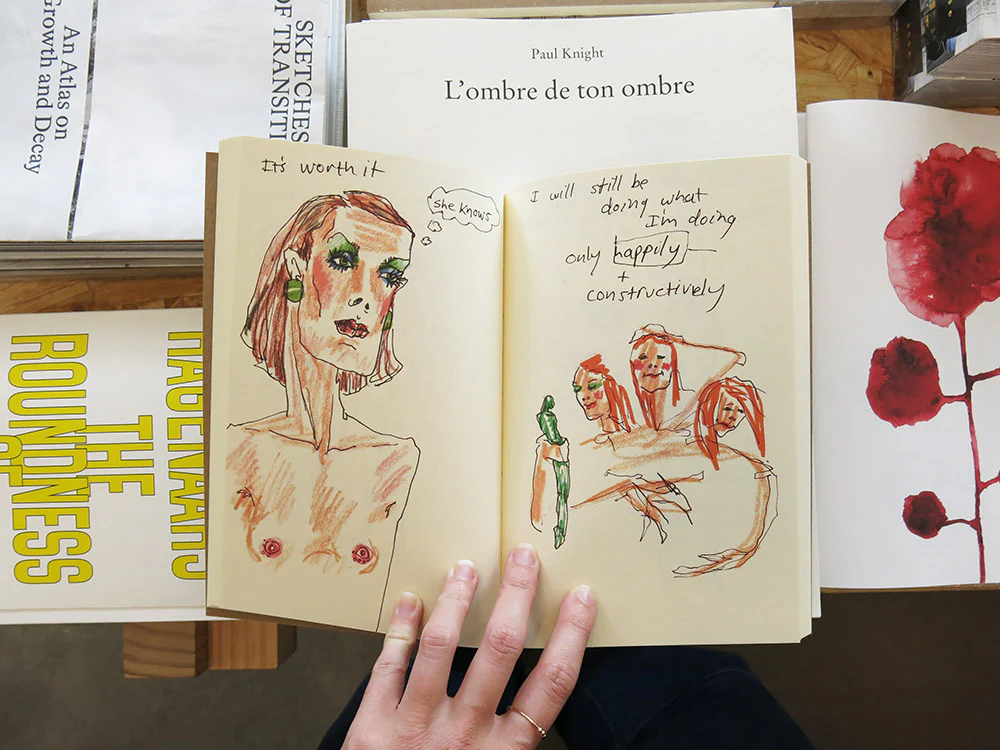 An Atlas on
Growth and Decay
SKETCHES
OF TRANSITI
Paul Knight
L'ombre de ton ombre
It's worth it
she knows
I will still be
doing what
I'm doing
only happily
+
constructively
HAGENAARS
THE
ROUNDNESS